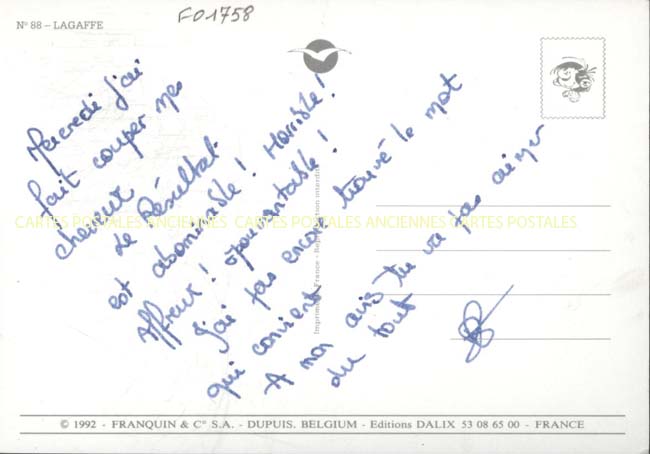 N° 88 – LAGAFFE
F01758
Mercredi j'ai
fait couper mes
cheveux
Le Résultat
est abominable ! Horrible !
Affreux ! épouvantable !
J'ai pas encore trouvé le mot
qui convient
A mon avis tu vas pas aimer
du tout
CARTES POSTALES ANCIENNES CARTES POSTALES ANCIENNES CARTES POSTALES
Imprimé en France - Reproduction interdite
© 1992 - FRANQUIN & C° S.A. - DUPUIS. BELGIUM - Editions DALIX 53 08 65 00 - FRANCE